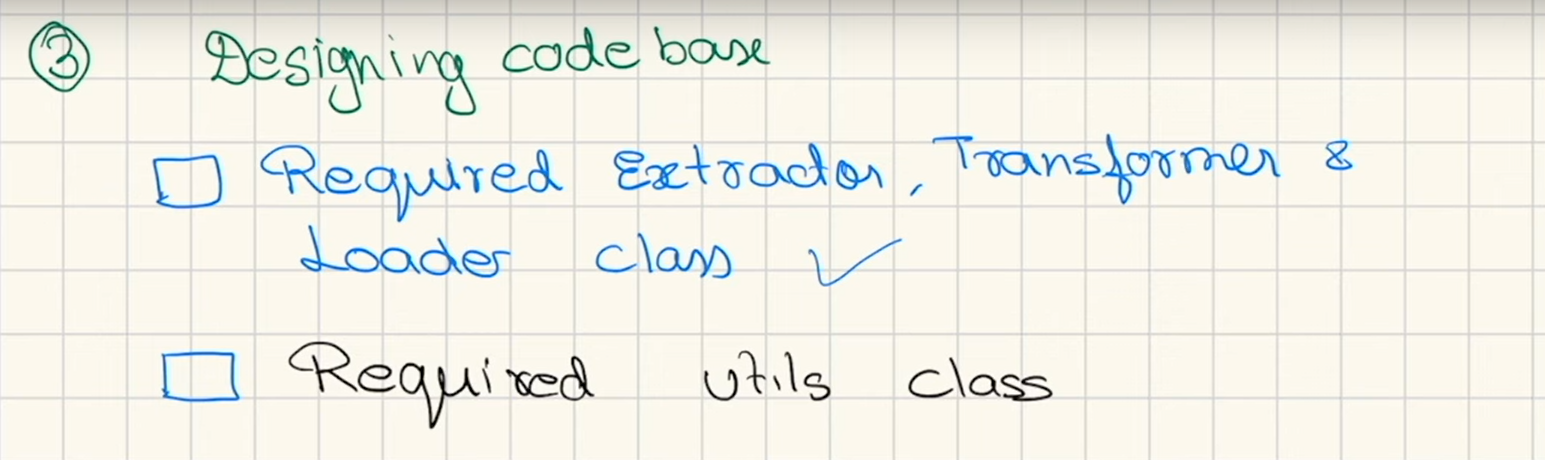 ③ Designing code base
□ Required Extractor, Transformer &
Loader class ✓
□ Required utils class